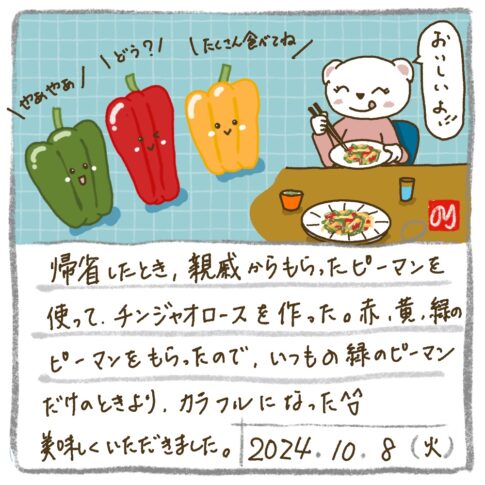 やぁやぁ
どう？
たくさん食べてね
おいしいよ!!
帰省したとき、親戚からもらったピーマンを
使って、チンジャオロースを作った。赤、黄、緑の
ピーマンをもらったので、いつもの緑のピーマン
だけのときより、カラフルになった^^
美味しくいただきました。
2024.10.8(火)